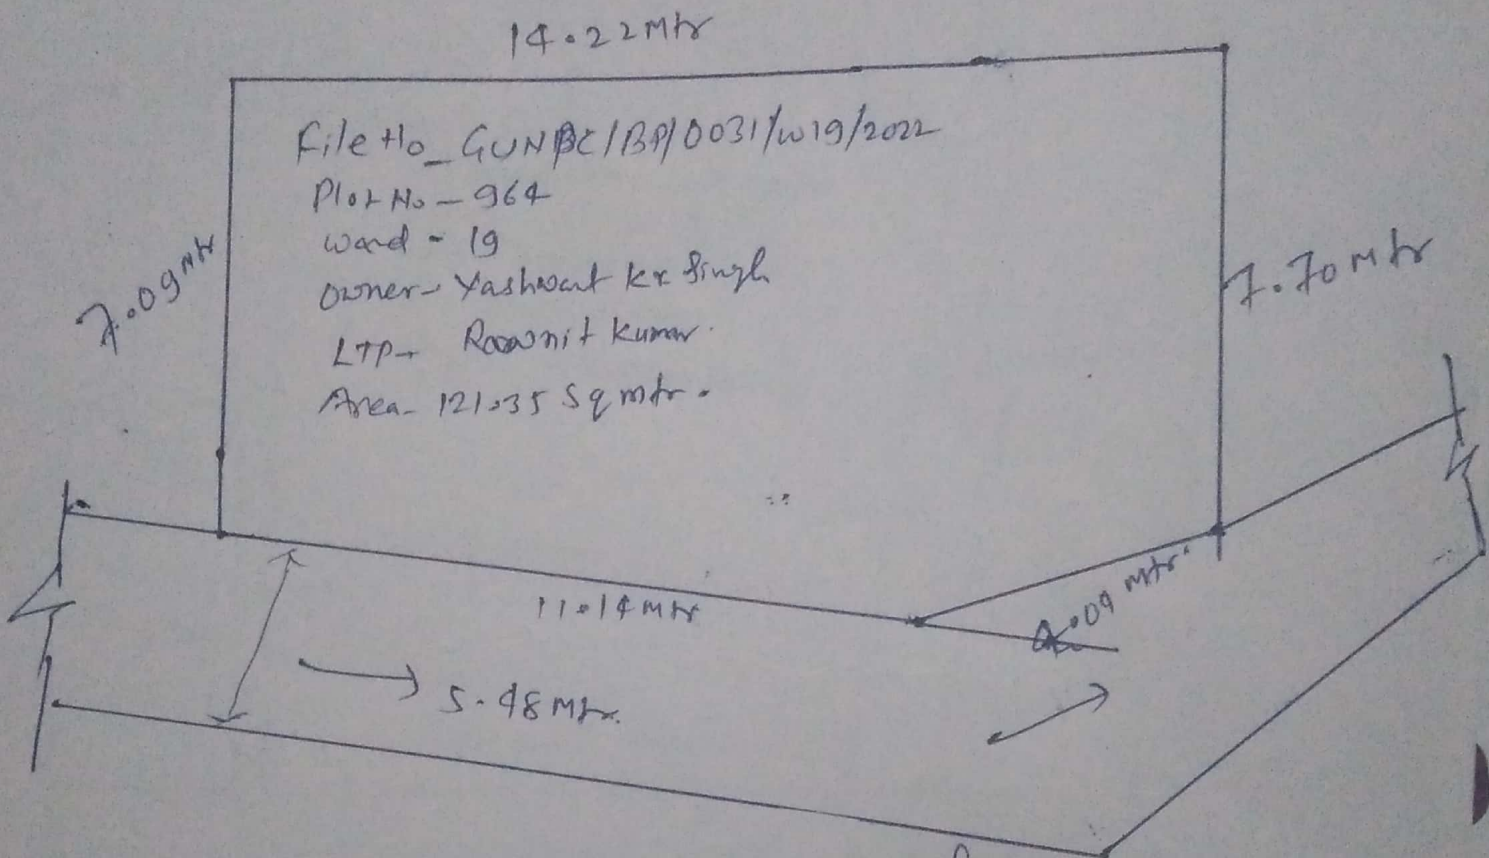 14.22 Mtr
File No_ GUNPC/BP/0031/W19/2022
Plot No - 964
Ward - 19
Owner- Yashwant Kr Singh
LTP- Kumar
Area- 121.35 Sqmtr.
7.09 Mtr
7.70 Mtr
11.14 Mtr
4.09 Mtr.
5.48 Mtr.